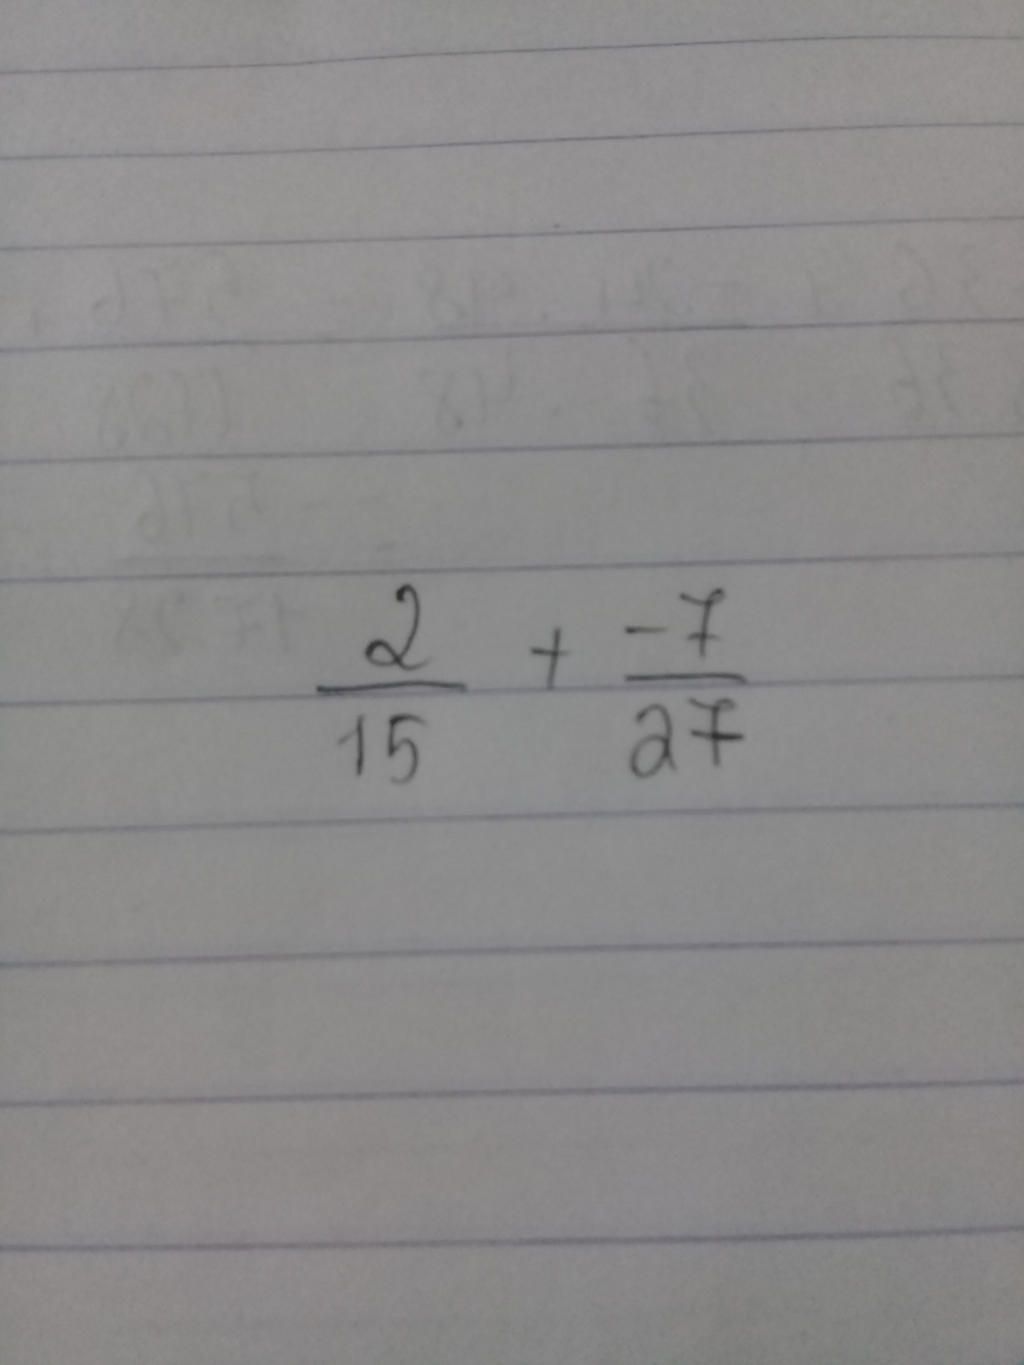 2/15 + -7/27